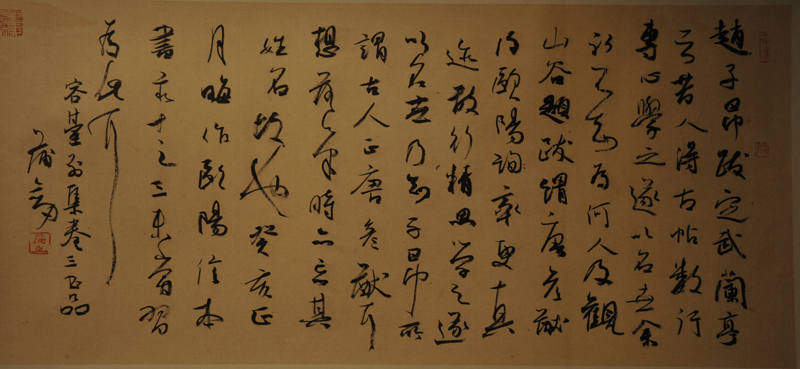 趙子昂跋定武蘭亭
云昔人得古帖數行
專心學之遂以名世余
初不知為何人及觀
山谷題跋謂唐彥猷
得歐陽詢率更十真
迹數行精思學之遂
以名世乃知子昂所
謂古人正唐彥猷耳
想落筆時亦忘其
姓名故也癸亥正
月晦作歐陽信本
書十之三未嘗習
為此耳
容臺別集卷三書品